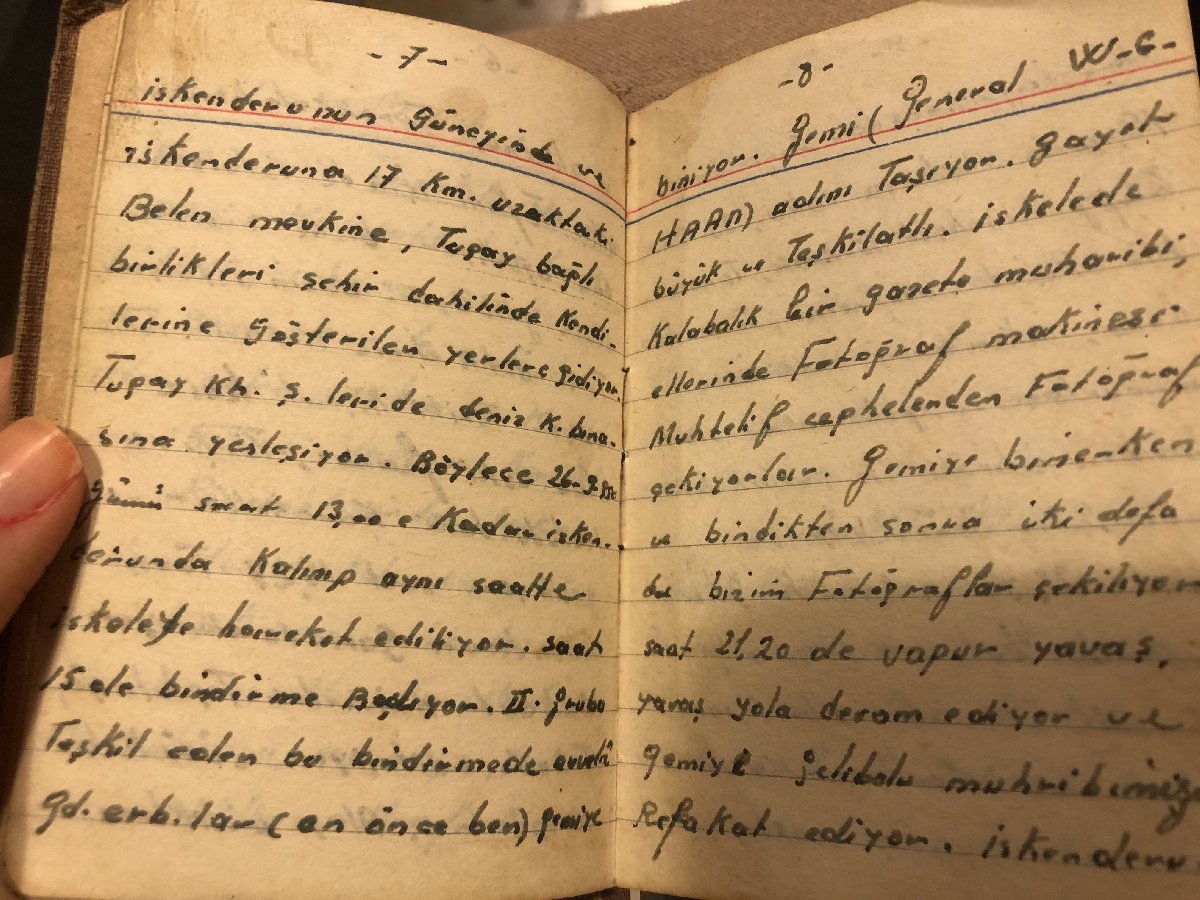 -7-
iskenderunun Güneyinde ve
iskenderuna 17 Km. uzaktaki
Belen mevkine, Tugay bağlı
birlikleri şehir dahilinde Kendi-
lerine Gösterilen yerlere gidiyor.
Tugay Kh. ş. leride deniz K. bına-
sına yerleşiyor. Böylece 26-9-
Günü saat 13,00 e Kadar isken-
derunda Kalınıp aynı saatte
iskeleye hareket ediliyor. saat
15 de bindirme Başlıyor. II. Grubu
Teşkil eden bu bindirmede evvelâ
gd. erb. lar (en önce ben) gemiye
-8-
biniyor. gemi (General W-G-
HAAN) adını Taşıyor. gayet
büyük ve Teşkilatlı. iskelede
Kalabalık bir gazete muharibi,
ellerinde Fotoğraf makinesi
Muhtelif cephelerden Fotoğraf
çekiyorlar. Gemiye binerken
ve bindikten sonra iki defa
da bizim Fotoğraflar çekiliyor
saat 21,20 de vapur yavaş,
yavaş yola devam ediyor ve
Gemiye gelibolu muhribimiz
Refakat ediyor. iskenderu